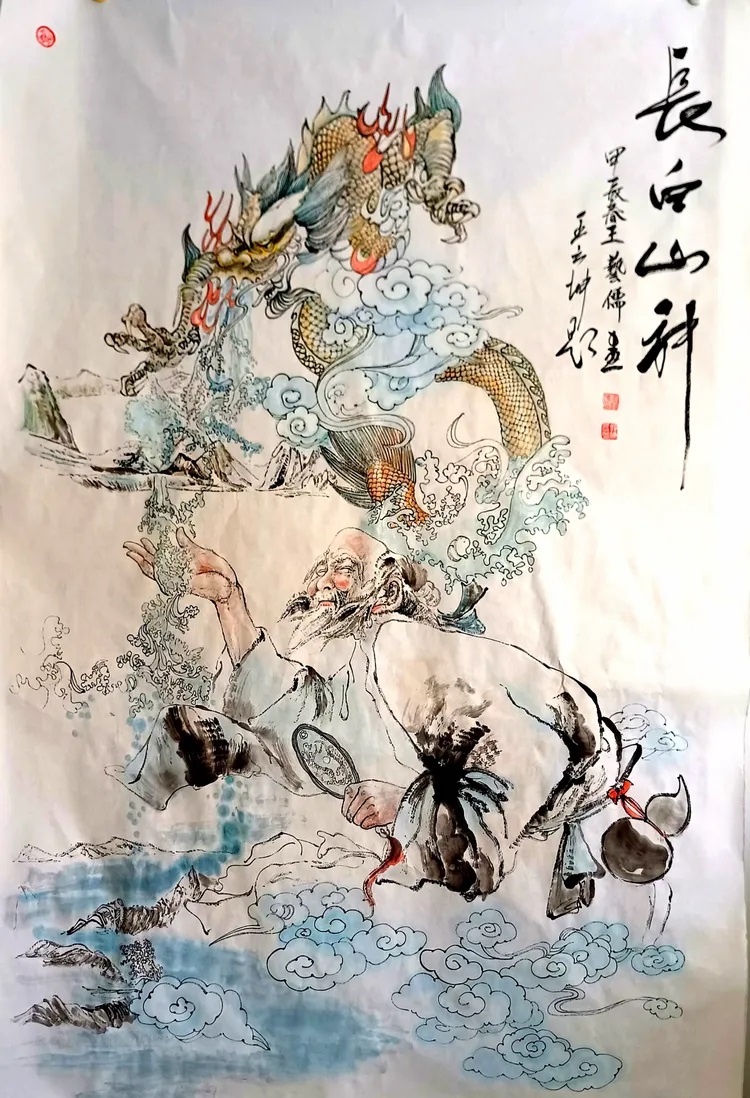 長白山神
甲辰春王藝儒畫
王云坤題